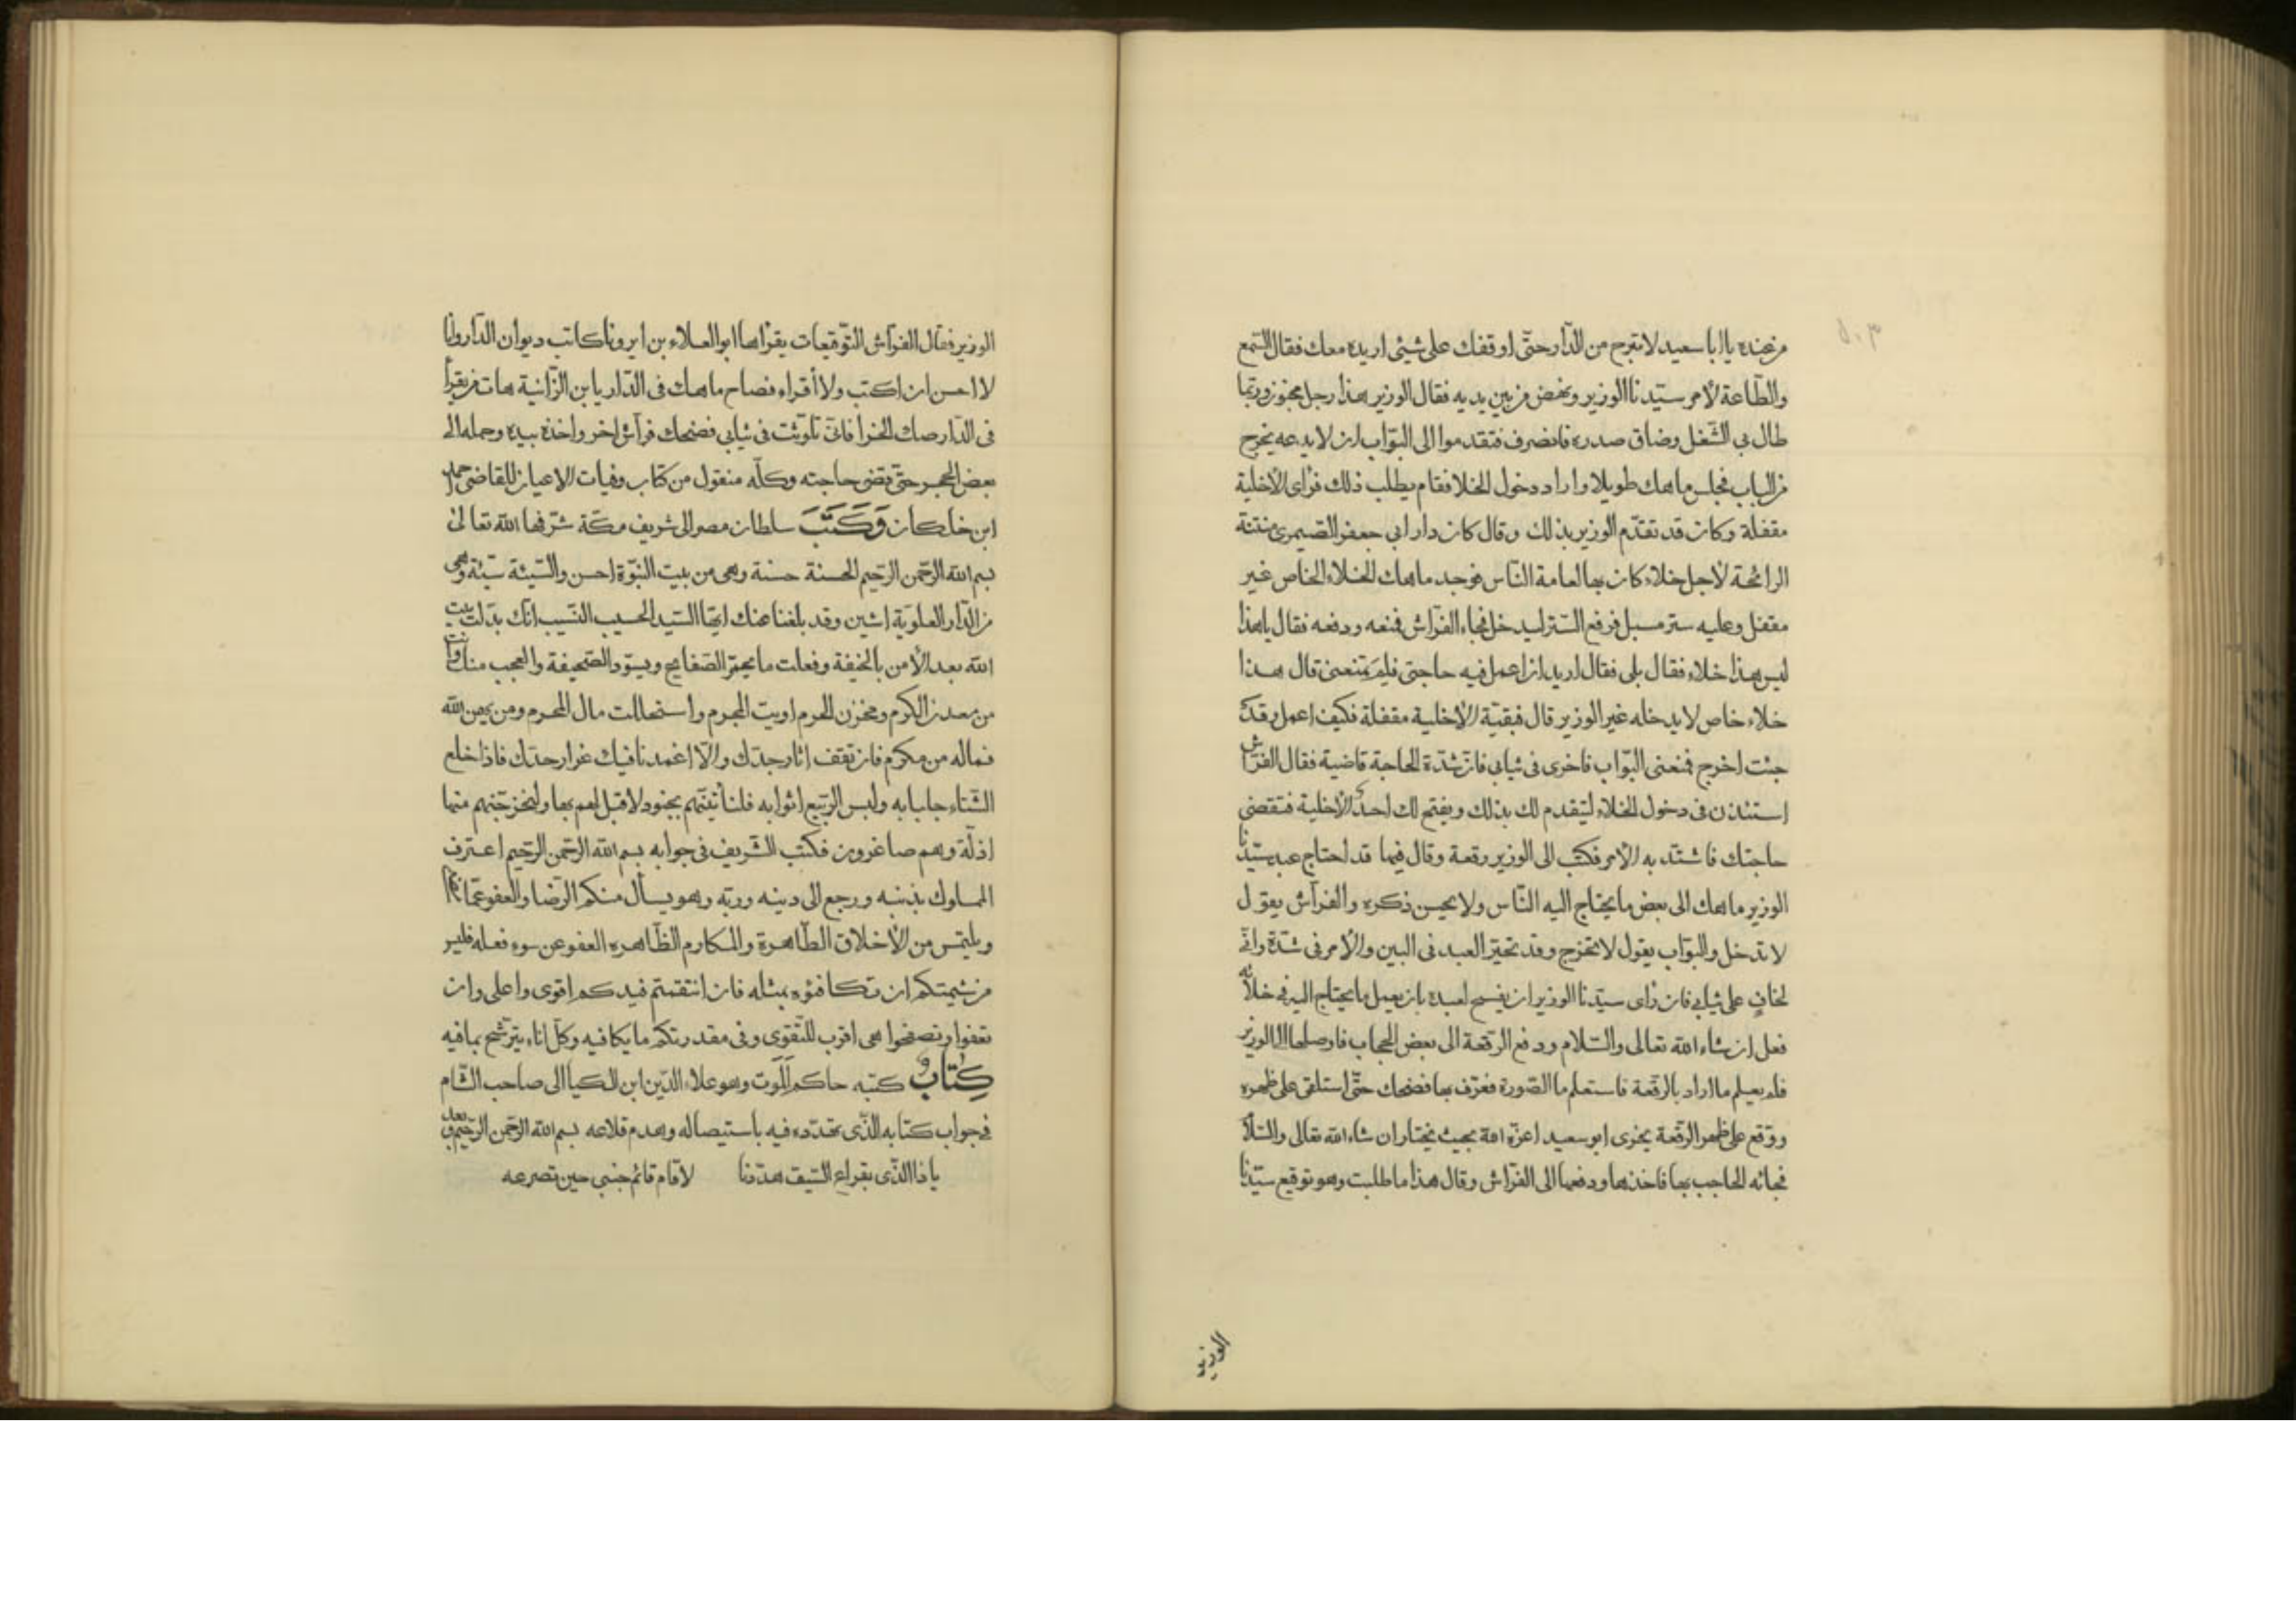 من عنده يا ابا سعيد لا تبرح من الدّار حتّى اوقفك على شيئ اريده معك فقال السّمع
والطّاعة لأمر سيّدنا الوزير ونهض من بين يديه فقال الوزير هذا رجل مجنون وربّما
طال بي الشّغل وضاق صدره فانصرف فتقدموا الى البوّاب ان لا يدعه يخرج
من الباب فجلس ماهك طويلا واراد دخول الخلا فقام يطلب ذلك فرأى الأخلية
مقفلة وكان قد تقدّم الوزير بذلك وقال كان دار ابي جعفر الصّيمرى منتنة
الرائحة لأجل خلاء كان بها لعامة النّاس فوجد ماهك الخلاء الخاص غير
مقفل وعليه ستر مسبل فرفع السّتر ليدخل فجاء الفرّاش فمنعه ودفعه فقال يا هذا
ليس هذا خلاء فقال بلى فقال اريد ان اعمل فيه حاجتى فلم تمنعنى قال هذا
خلاء خاص لا يدخله غير الوزير قال فبقيّة الأخلية مقفلة فكيف اعمل وقد
جئت اخرج فمنعنى البوّاب فاخرى فى ثيابى فانّ شدّة الحاجة قاضية فقال الفرّاش
استئذن فى دخول الخلاء ليتقدم لك بذلك ويفتح لك احدى الأخلية فتقضى
حاجتك فاشتدّ به الأمر فكتب الى الوزير رقعة وقال فيها قد احتاج عبد سيّدنا
الوزير ماهك الى بعض ما يحتاج اليه النّاس ولا يحسن ذكره والفرّاش يقول
لا تدخل والبوّاب يقول لا تخرج وقد تحيّر العبد فى البين والأمر فى شدّة وانّى
لخاف على ثيابى فان رأى سيّدنا الوزير ان يفسح لعبده بان يعمل ما يحتاج اليه فى خلائه
فعل ان شاء الله تعالى والسّلام ودفع الرّقعة الى بعض الحجاب فاوصلها الى الوزير
فلم يعلم ما اراد بالرّقعة فاستعلم ما الصّورة فعرّف بها فضحك حتّى استلقى على ظهره
ووقّع على ظهر الرقعة يخرى ابو سعيد اعزّه الله بحيث يختار ان شاء الله تعالى والسّلا
فجائه الحاجب بها فاخذها ودفعها الى الفرّاش وقال هذا ما طلبت وهو توقيع سيّدنا
الوزير
الوزير فقال الفرّاش التّوقيعات يقرأها ابو العلاء بن ابرونا كاتب ديوان الدّار وانا
لا احسن ان اكتب ولا أقراء فصاح ماهك فى الدّار يا بن الزّانية هات من يقرأ
فى الدّار صك الخرأ فانّى تلوّثت فى ثيابى فضحك فرّاش اخر واخذه بيده وحمله الى
بعض الحجر حتّى قضى حاجته وكلّه منقول من كتاب وفيات الاعيان للقاضى
ابن خلكان وَكَتَبَ سلطان مصر الى شريف مكّة شرّفها الله تعالى
بسم الله الرّحمن الرّحيم الحسنة حسنة وهى من بيت النبوّة احسن والسّيئة سيّئة وهى
من الدّار العلويّة اشين وقد بلغنا عنك ايّها السّيد الحسيب النّسيب انّك بدّلت بيت
الله بعد الأمن بالخيفة وفعلت ما يحمرّ الصّفايح ويسوّد الصّحيفة والعجب منك وانت
من معدن الكرم ومخزن الحرم اويت المجرم واستحللت مال المحرم ومن يهن الله
فما له من مكرم فان تقف اثار جدّك والّا اغمدنا فيك غرار حدّك فاذا خلع
الشّتاء جلبابه ولبس الرّبيع اثوابه فلنأتينّهم بجنود لا قبل لهم بها ولنخرجنّهم منها
اذلّة وهم صاغرون فكتب الشّريف فى جوابه بسم الله الرّحمن الرّحيم اعترف
المملوك بذنبه ورجع الى دينه وربّه وهو يسأل منكم الرّضا والعفو عمّا
ويلتمس من الأخلاق الطّاهرة والمكارم الظّاهره العفو عن سوء فعله فليس
من شيمتكم ان تكافئوه بمثله فان انتقمتم فيدكم اقوى واعلى وان
تعفوا وتصفحوا هى اقرب للتّقوى وفى مقدرتكم ما يكافيه وكلّ اناء يترشّح بما فيه
كِتَابٌ كتبه حاكم اَلَمُوت وهو علاء الدّين ابن الكيا الى صاحب الشّام
فى جواب كتابه الّذى تهدّده فيه باستيصاله وهدم قلاعه بسم الله الرّحمن الرّحيم وبعد
يا ذا الّذى بقراع السّيف هدّدنا لا قام قائم جنبى حين تصرعه